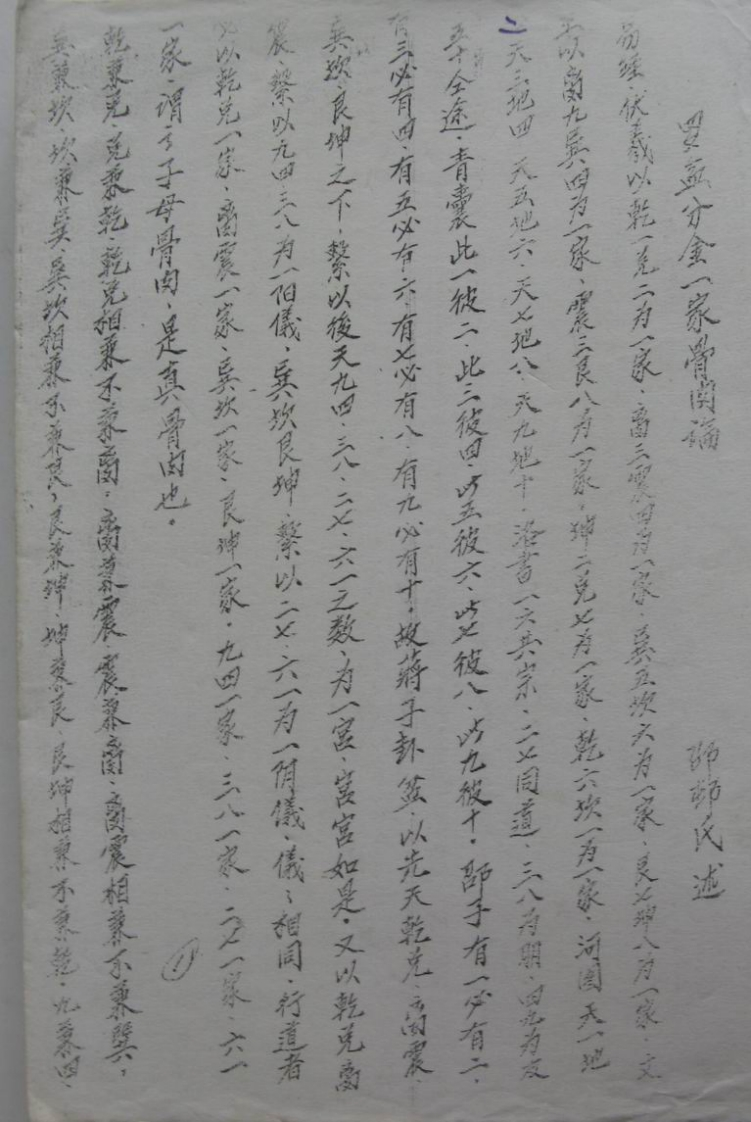 羅盤分金一家骨肉論 邵郁氏述
易經、伏羲以乾一兑二為一家、离三震四为一家、巽五坎六为一家、艮七坤八为一家、文
王以离九巽四为一家、震三艮八为一家、坤二兑七为一家、乾六坎一为一家、河图天一地
二天三地四 天五地六、天七地八、天九地十、洛書一六共宗、二七同道、三八为朋、四九为友
五十全途、青囊此一彼二、此三彼四、此五彼六、此七彼八、此九彼十。邵子有一必有二、
有三必有四、有五必有六、有七必有八、有九必有十、故蔣子卦盆、以先天乾兑、离震、
巽坎、艮坤之下、繫以後天九四、三八、二七、六一之数、为一宮、宮宮如是、又以乾兑离
震、繫以九四三八为一阳儀、巽坎艮坤、繫以二七、六一为一阴儀、儀儀相同、行道者
必以乾兑一家、离震一家、巽坎一家、艮坤一家、九四一家、三八一家、二七一家、六一
一家、謂之子母骨肉、是真骨肉也。
乾兼兑、兑兼乾、乾兑相兼不兼离、离兼震、震兼离、离震相兼不兼巽、
巽兼坎、坎兼巽、巽坎相兼不兼艮、艮兼坤、坤兼艮、艮坤相兼不兼乾、九兼四、
①